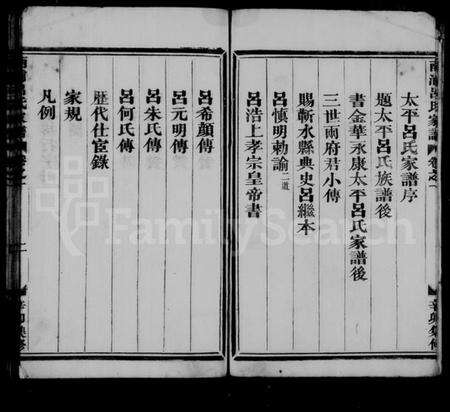 太平呂氏家譜序
題太平呂氏族譜後
書金華永康太平呂氏家譜後
三世雨府君小傳
賜蘄水縣典史呂繼本
呂慎明勅諭二道
呂浩上孝宗皇帝書
呂希顏傳
呂元明傳
呂朱氏傳
呂何氏傳
歷代仕宦錄
家規
凡例
FamilySearch